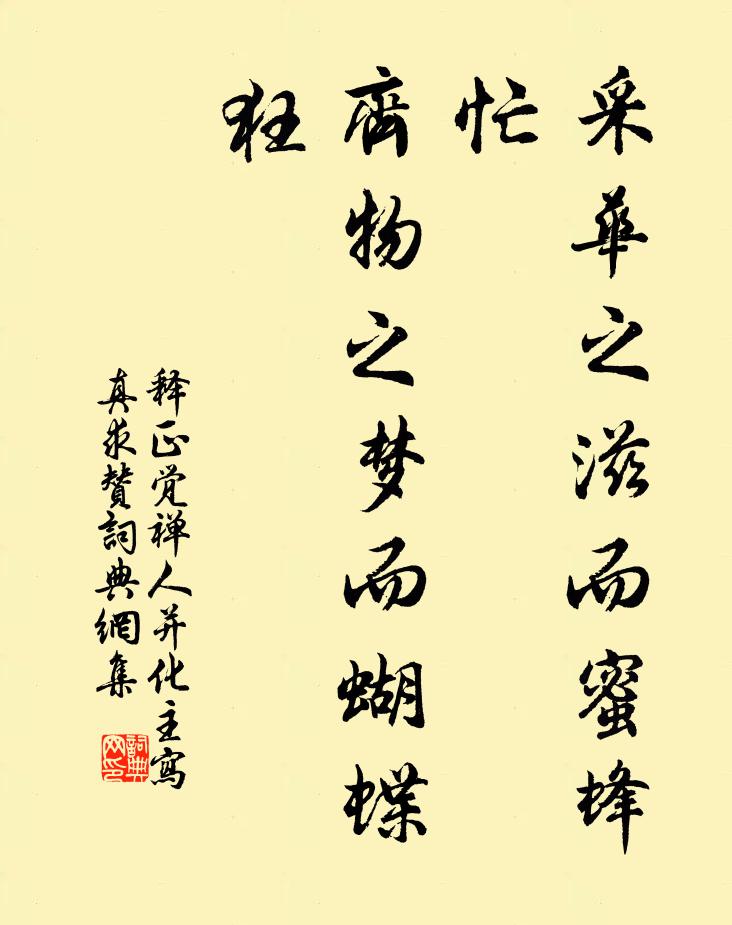 采華之滋而蜜蜂
忙
齊物之梦而蝴蝶
狂
释正觉禅人并化主寫
真求贊詞典網集
詞典
网印